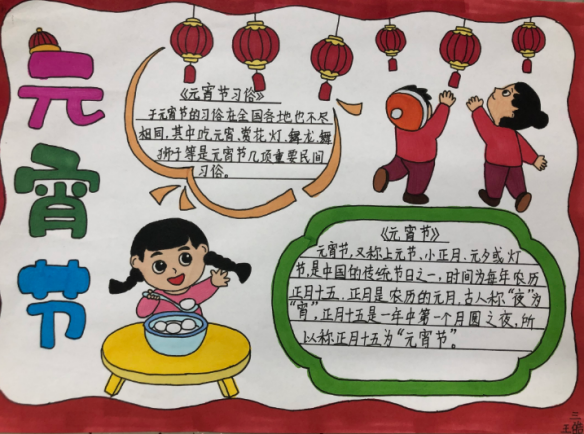 元
宵
节
《元宵节习俗》
于元宵节的习俗在全国各地也不尽
相同,其中吃元宵、赏花灯、舞龙、舞
狮子等是元宵节几项重要民间
习俗。
《元宵节》
元宵节,又称上元节、小正月、元夕或灯
节,是中国的传统节日之一,时间为每年农历
正月十五.正月是农历的元月,古人称“夜”为
“宵”,正月十五是一年中第一个月圆之夜,所
以称正月十五为“元宵节”。
三